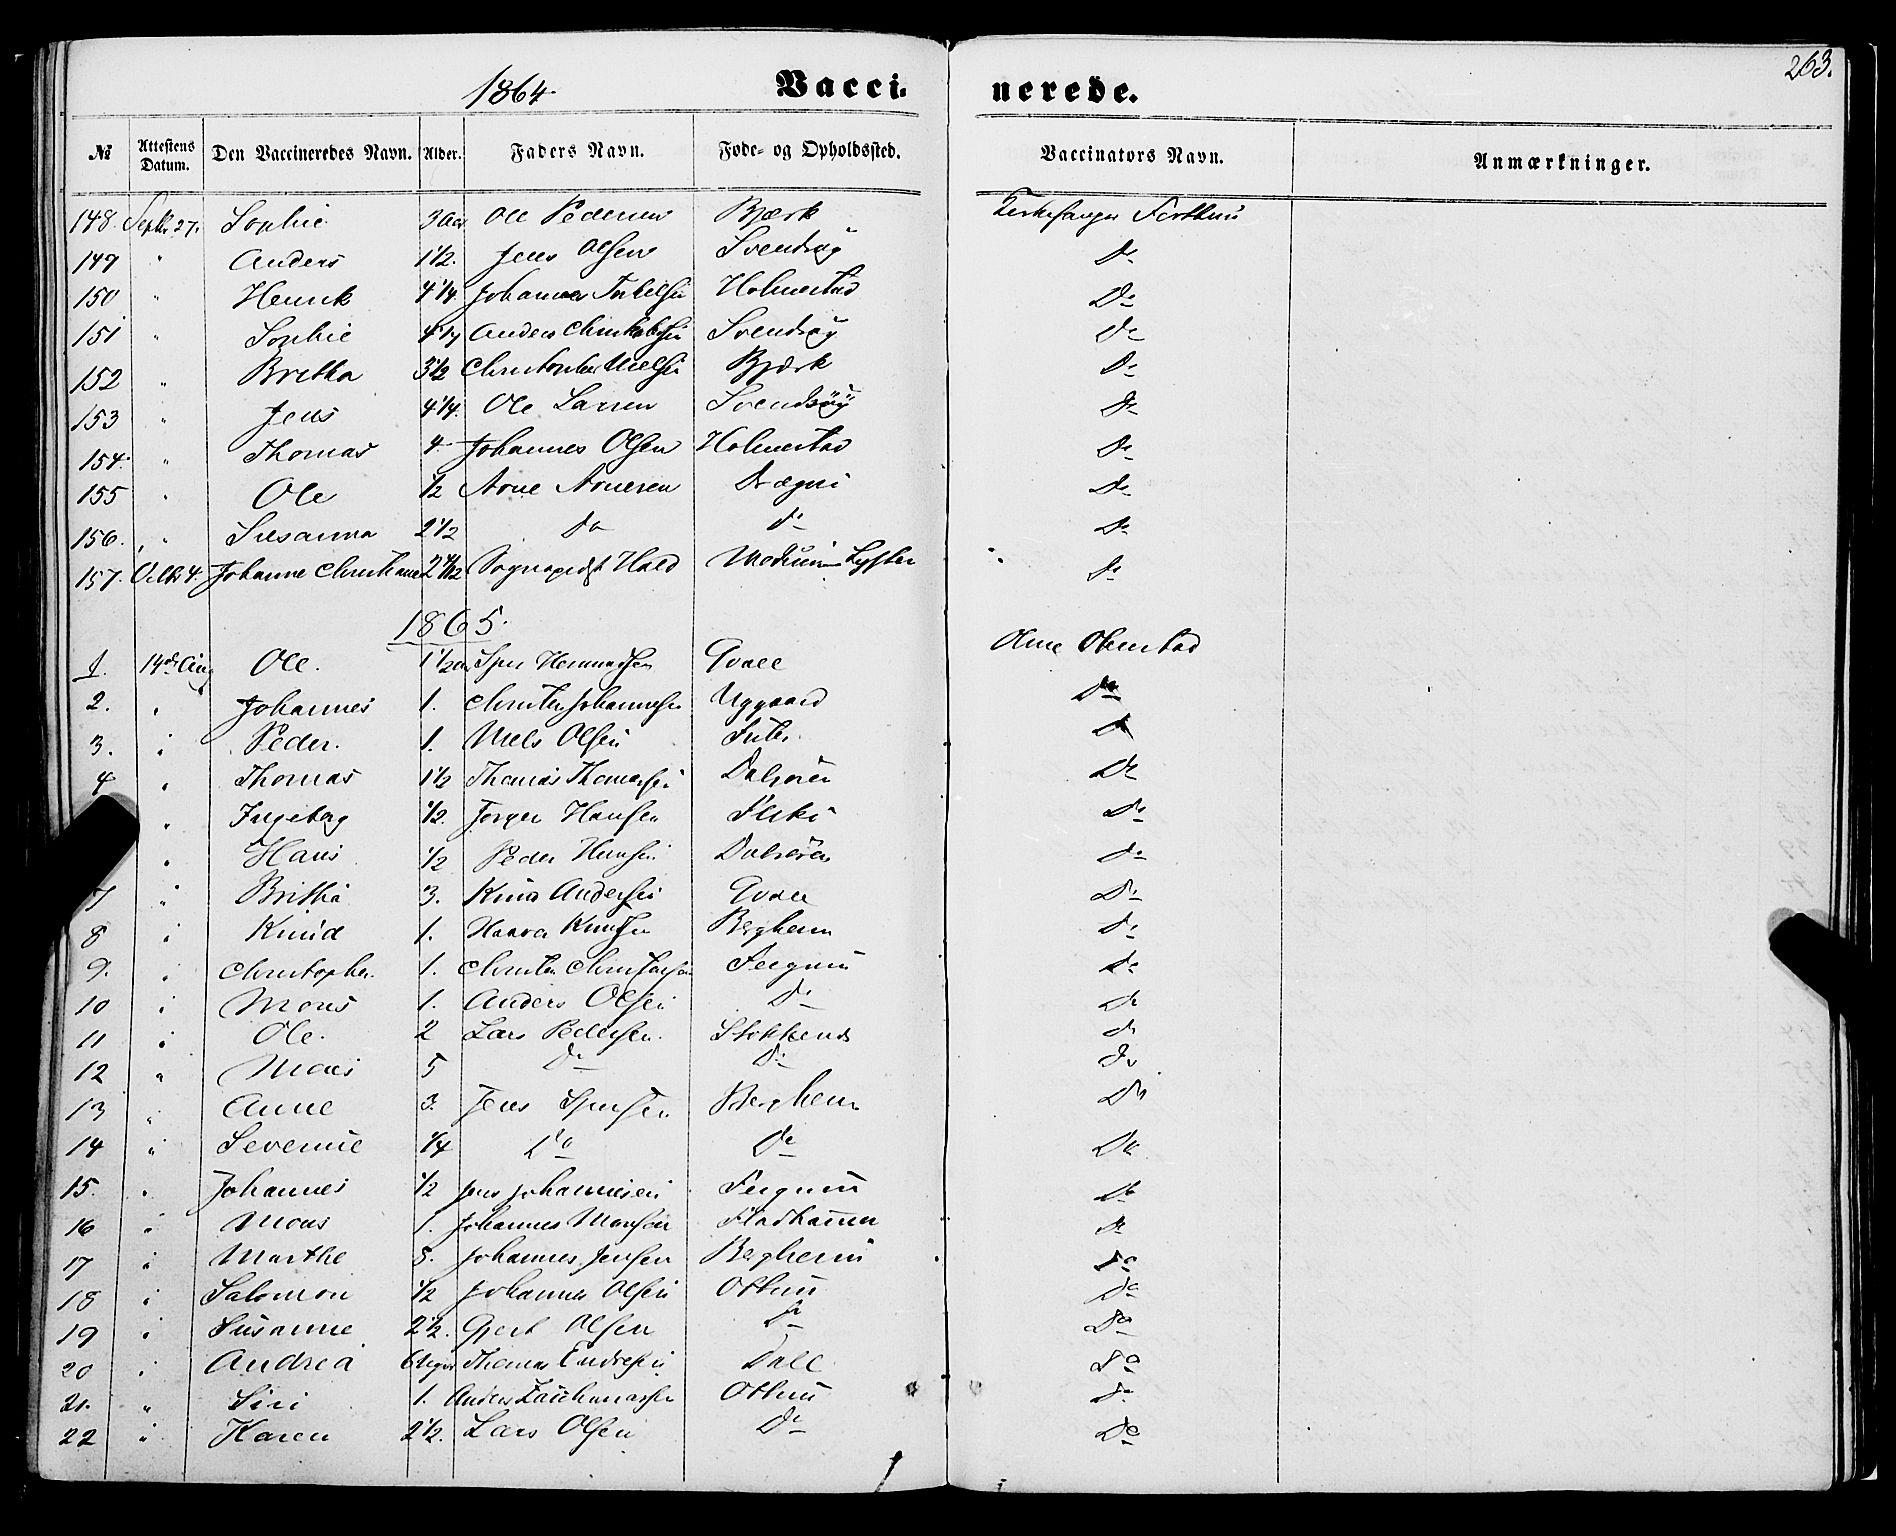 263.
1864. Vacci- nerede.
№ Attestens Datum. Den Vaccineredes Navn. Alder. Faders Navn. Føde- og Opholdssted. Vaccinators Navn. Anmærkninger.
148. Septbr 27. Sophie 3 Aar Ole Pedersen Bjørk Kirkesanger
149 " Anders 1 1/2. Jens Olsen Svendsøy Do
150 " Henrik 4 1/4 Johannes Holmestad Do
151 " Sophie Anders Svendsøy Do
152 " Bretha 3 1/2 Christopher Nielsen Bjørk Do
153 " Jens 4 1/4. Ole Larsen Svendsøy Do
154. " Thomas 4 Johannes Olsen Holmestad Do
155 " Ole 1/2 Arne Arnesen Drægni Do
156. " Susanna 2 1/2 do do Do
157. Octbr 4. Johanne Christiane Sognepræst Hald Lyster Do
1865.
1. 14de Aug Ole. 1 1/2 Aar Gvale Olene Obrestad
2. " Johannes 1. Christen Johannesen Uggaard Do
3. " Peder. 1. Niels Olsen Do
4 " Thomas 1 1/2 Thomas Thomassen Dalsøren Do
" Ingeborg 1/2. Jørgen Hansen Fliski Do
" Hans 1/2 Peder Hansen Dalsøren Do
7 " Britha 3. Knud Andersen Gvale Do
8 " Knud 1. Haavar Knudsen Berghem Do
9. " Christopher. 1. Christen Fuglum Do
10 " Mons 1. Anders Olsen Do Do
11 " Ole. 2 Lars Pedersen. Stokkenes Do
12 " Mons 5 Do Do Do
13 " Anne 3. Jens Berghem Do
14 " Severine 1/4 Do Do Do
15. " Johannes 1/2 Jens Johannesen Fuglum Do
16 " Mons 1. Johannes Monsen Fladhamer Do
17 " Marthe 5. Johannes Jensen Berghem Do
18 " Salomon 1/2 Johannes Olsen Ottum Do
19 " Susanne 2 1/2. Gjert Olsen Do Do
20 " Andrea 6 Uger Thomas Endresen Dale Do
21. " Siri 1. Anders Zachariassen Ottum Do
22 " Karen 2 1/2. Lars Olsen Do Do